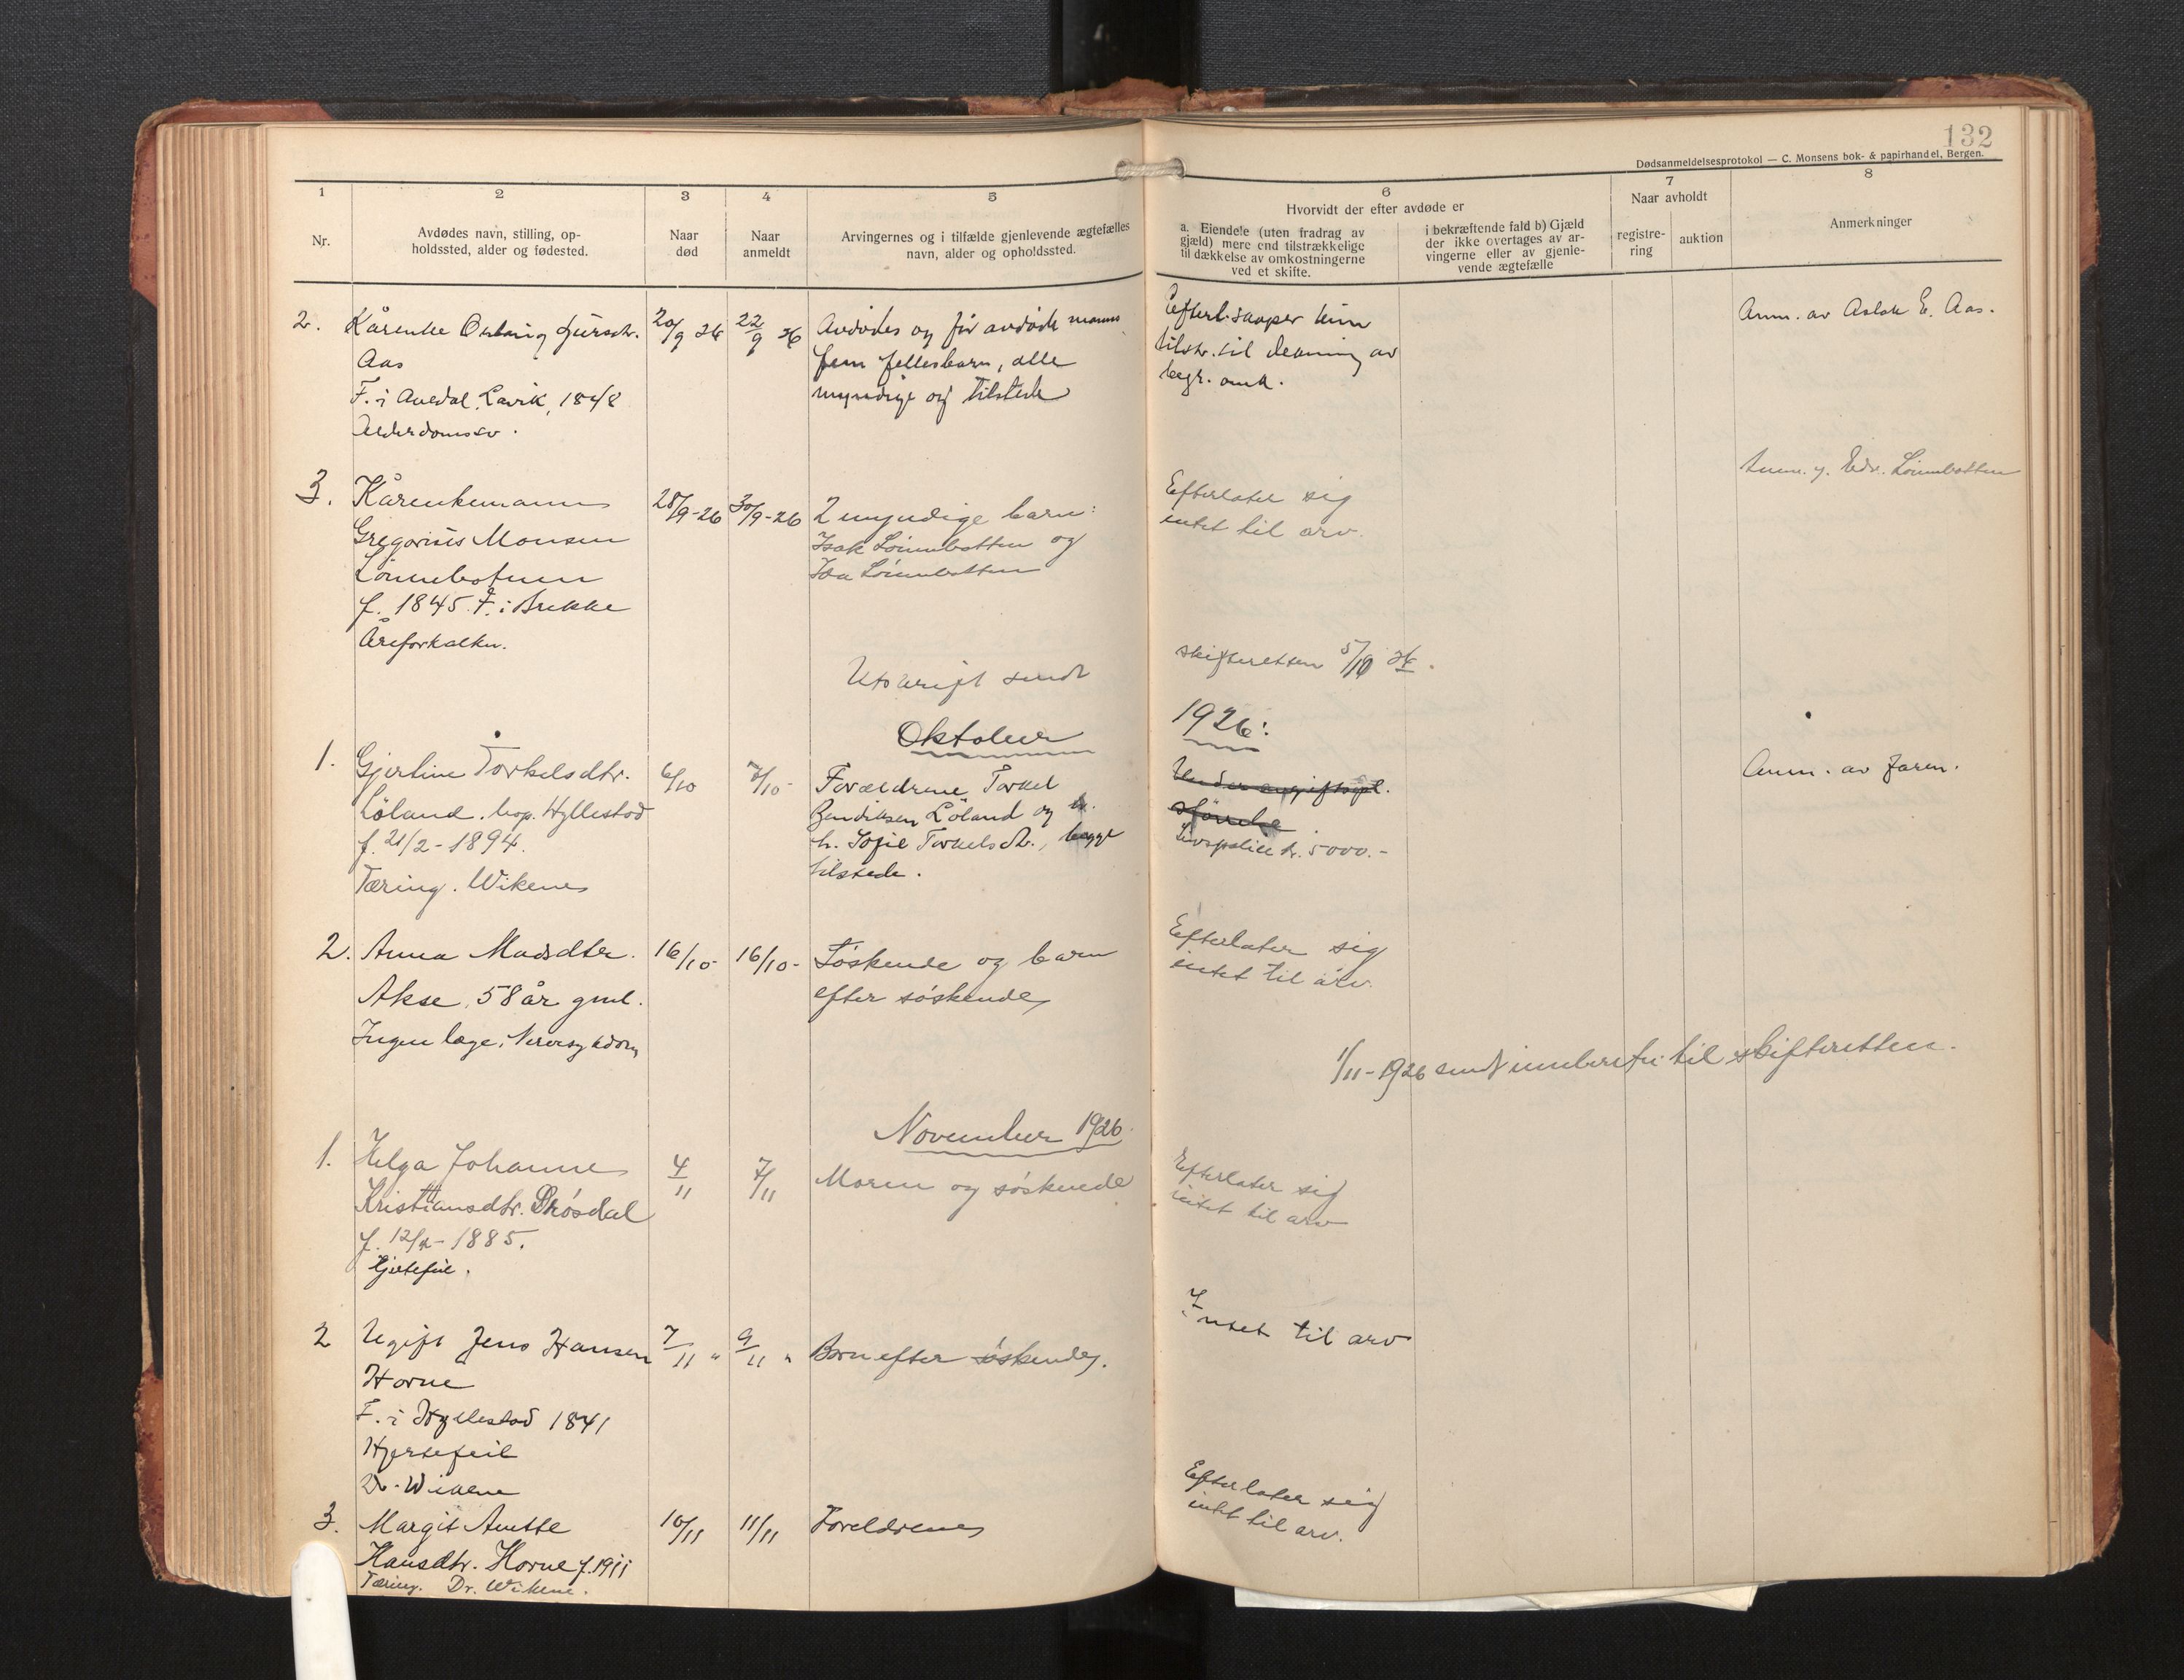 132
Dødsanmeldelsesprotokol — C. Monsens bok- & papirhandel, Bergen.
1
Nr.
2
Avdødes navn, stilling, op-
holdssted, alder og fødested.
3
Naar
død
4
Naar
anmeldt
5
Arvingernes og i tilfælde gjenlevende ægtefælles
navn, alder og opholdssted.
6
Hvorvidt der efter avdøde er
a. Eiendele (uten fradrag av
gjæld) mere end tilstrækkelige
til dækkelse av omkostningerne
ved et skifte.
i bekræftende fald b) Gjæld
der ikke overtages av ar-
vingerne eller av gjenle-
vende ægtefælle
7
Naar avholdt
registre-
ring
auktion
8
Anmerkninger
2.
Kårenke
Aas
F. i Lavik, 1848
Alderdomssv.
20/9 26
22/9 26
Avdødes og før avdøde manns
fem fellesbarn, alle
myndige og tilstede
Efterl. skaper kun
tilstr. til dekning av
begr. omk.
Anm. av Aslak E. Aas.
3.
Kårenkemann
Gregorius Monsen
Lönnebotnen
f. 1845. F. i Brekke
Åreforkalkn.
28/9-26
30/9-26
2 myndige barn:
Isak Lönnebotten og
Lönnebotten
Efterlater sig
intet til arv.
Anm. g. Edv. Lönnebotten
Utskrift sendt
skifteretten 5/10 26.
Oktober
1926:
1.
Gjertine Torkelsdtr.
Löland. bop. Hyllestad
f. 21/2-1894.
Tæring. Wikenes
6/10
7/10-
Forældrene Torkel
Bendiksen Löland og
h. Sofie Torkelsdtr., begge
tilstede.
Under avgiftspl.
størrelse
Livspolice kr. 5000.-
Anm. av faren.
2.
Anna Madsdtr.
Akse, 58 år gml.
Ingen læge. Nervesykdom
16/10-
16/10-
Søskende og barn
efter søskende
Efterlater sig
intet til arv.
1/11-1926 sendt innberetn. til skifteretten.
November 1926.
1.
Helga Johanne
Kristiansdtr. Prøsdal
f. 12/4-1885.
Hjertefeil.
4/11
7/11
Moren og søskende
Efterlater sig
intet til arv
2
Ugift Jens Hansen
Horne
F. i Hyllestad 1841
Hjertefeil
Dr. Wikene
7/11 "
9/11 "
Barn efter søskende.
Intet til arv
3.
Margit Anette
Hansdtr. Horne f. 1911
Tæring. Dr. Wikene.
10/11
11/11
Foreldrene
Efterlater sig
intet til arv.